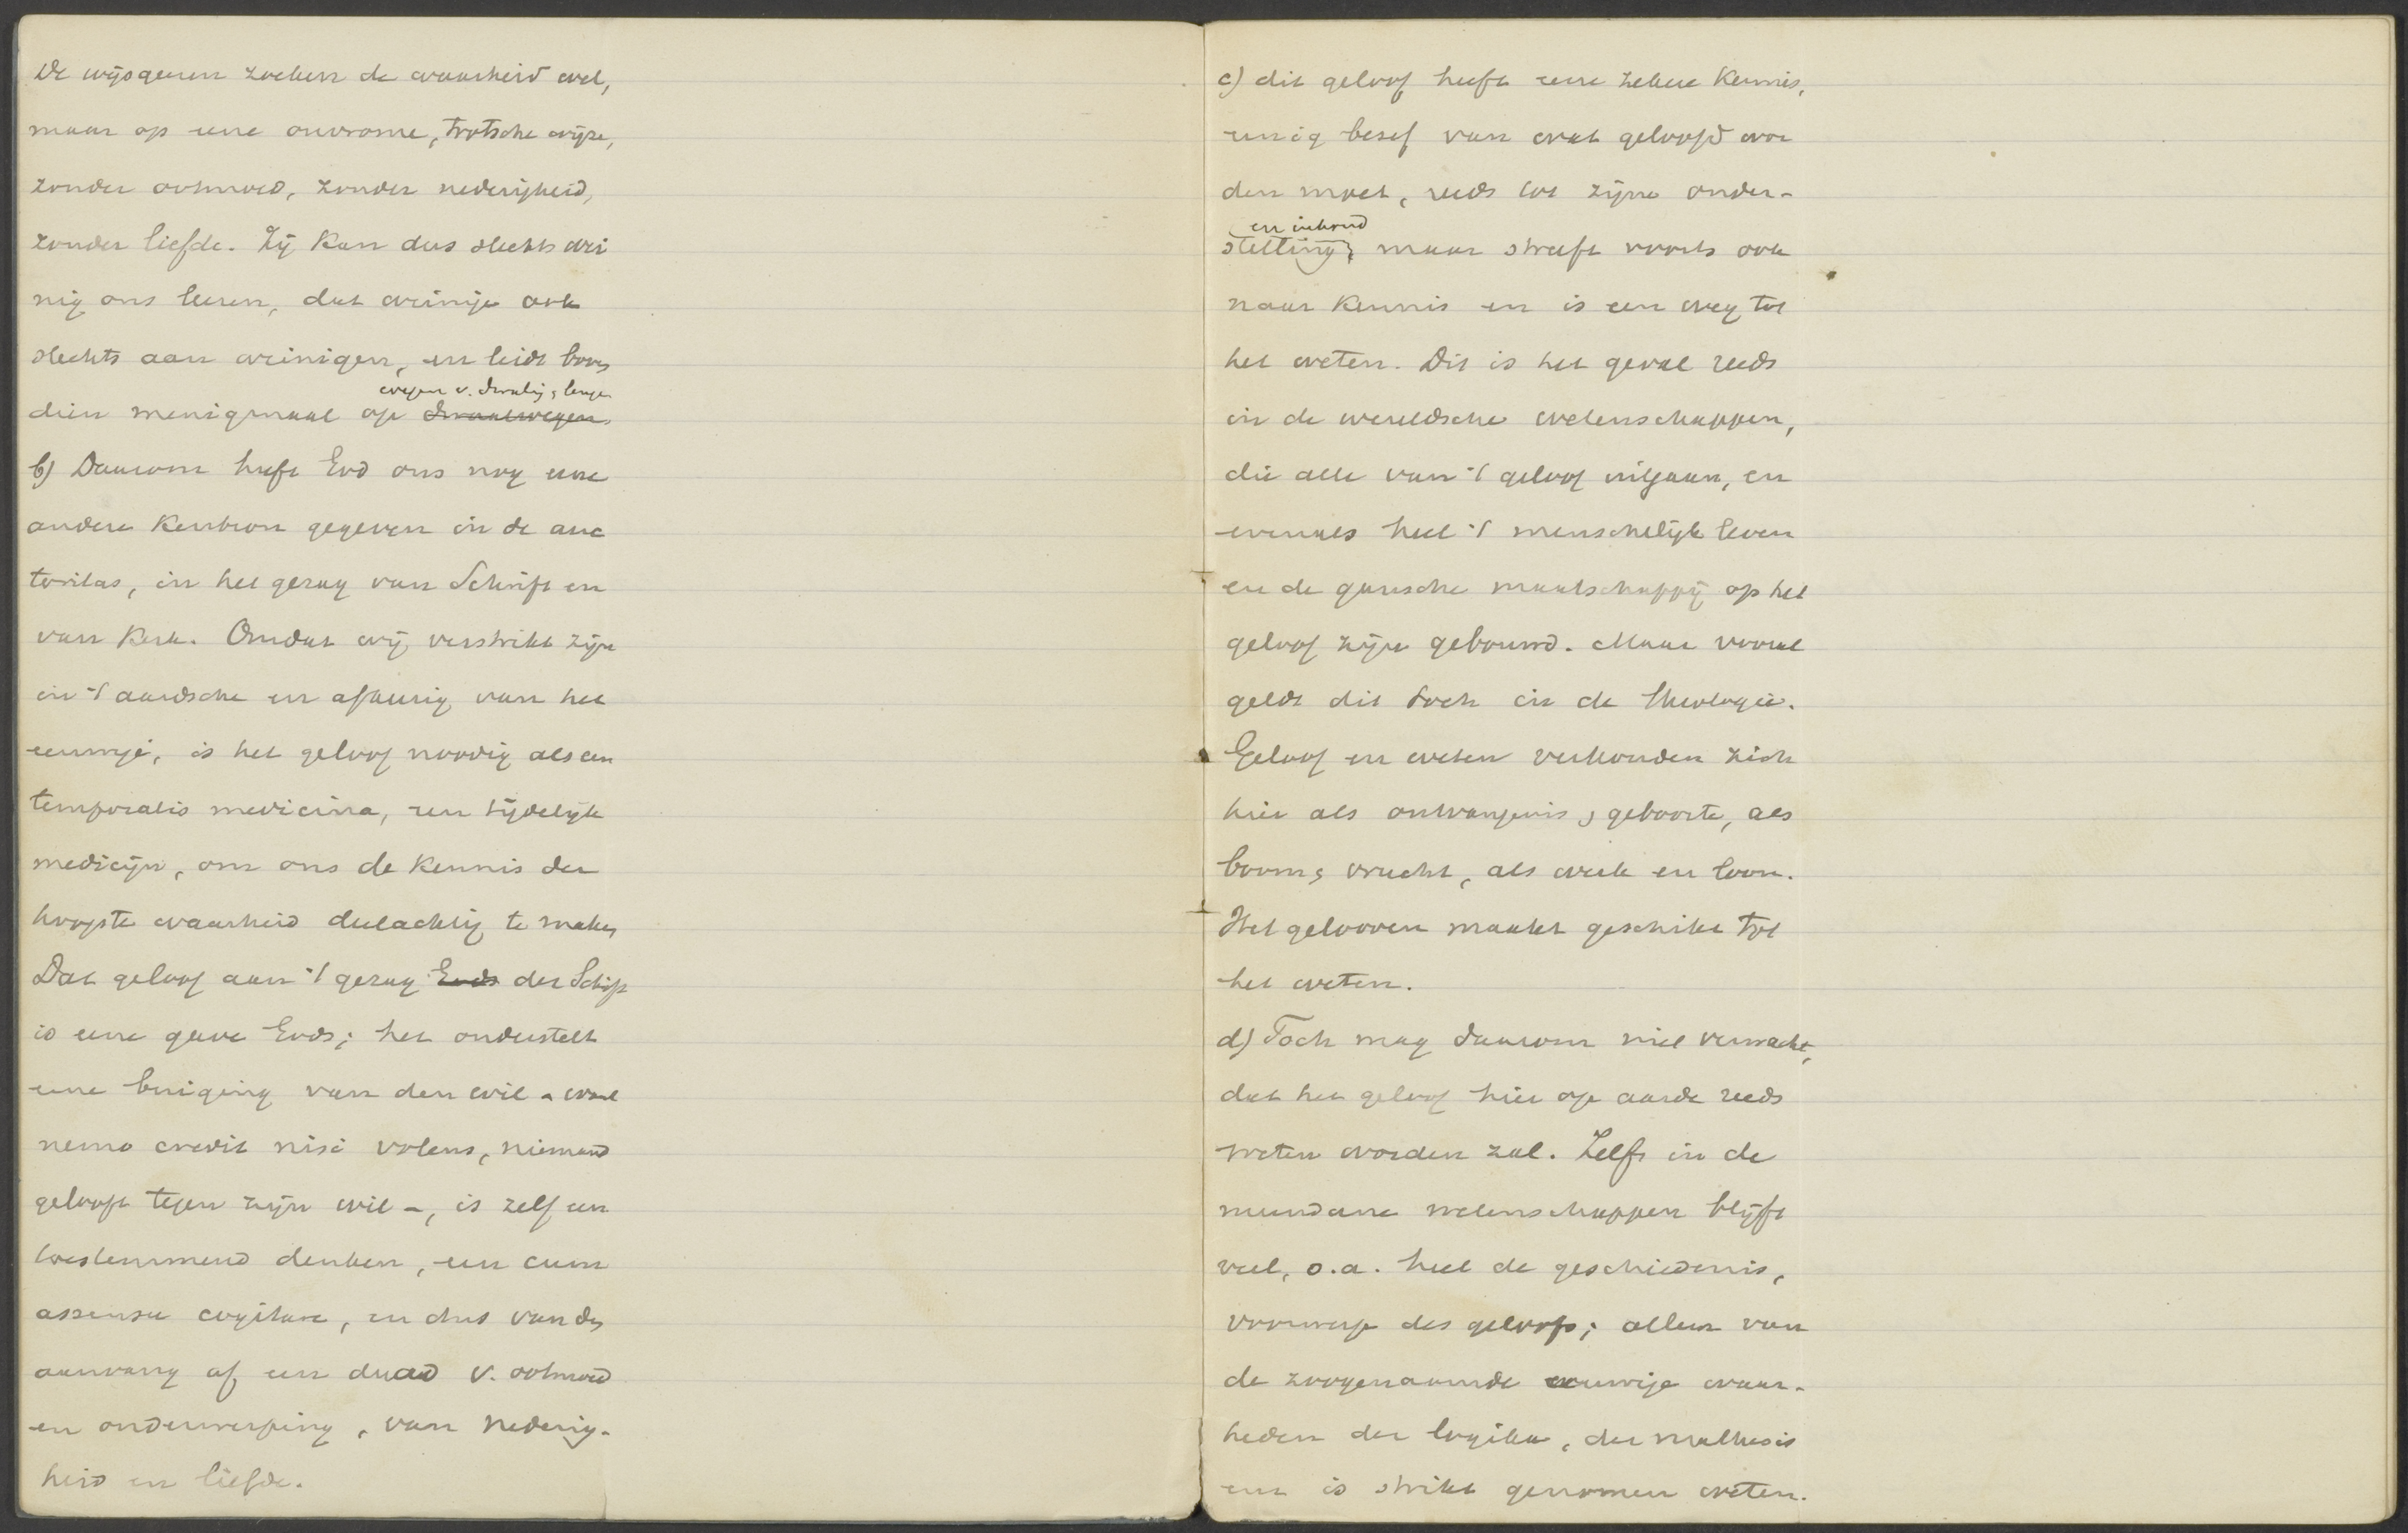 De wijsgeeren zoeken de waarheid wel,
maar op eene onvrome, trotsche wijze,
zonder ootmoed, zonder nederigheid,
zonder liefde. Zij kan dus slechts wei
nig ons leeren, dat weinige ook
slechts aan weinigen, en leidt boven
wegen v. dwaling & leugen
dien menigmaal op dwaalwegen
b) Daarom heeft God ons nog eene
andere kenbron gegeven in de auc
toritas, in het gezag van Schrift en
van Kerk. Omdat wij verstrikt zijn
in 't aardsche en afkeerig van het
eeuwige, is het geloof noodig als een
temporalis medicina, een tijdelijk
medicijn, om ons de kennis der
hoogste waarheid deelachtig te maken
Dat geloof aan 't gezag Gods der Schrift
is eene gave Gods; het onderstelt
eene buiging van den wil - want
nemo credit nisi volens, niemand
gelooft tegen zijn wil -, is zelf een
toestemmend denken, een cum
assensu cogitare, en dus van den
aanvang af een daad v. ootmoed
en onderwerping, van nederig-
heid en liefde.
c) dit geloof heeft eene zekere kennis,
eenig besef van wat geloofd wor
den moet, reeds tot zijne onder-
en inhoud
stelling, maar streeft voorts ook
naar kennis en is een weg tot
het weten. Dit is het geval reeds
in de wereldsche wetenschappen,
die alle van 't geloof uitgaan, en
evenals heel 't menschelijk leven
en de gansche maatschappij op het
geloof zijn gebouwd. Maar vooral
geldt dit toch in de theologie.
Geloof en weten verhouden zich
hier als ontvangenis & geboorte, als
boom & vrucht, als werk en loon.
Het gelooven maakt geschikt tot
het weten.
d) Toch mag daarom niet verwacht,
dat het geloof hier op aarde reeds
weten worden zal. Zelfs in de
mundane wetenschappen blijft
veel, o.a. heel de geschiedenis,
voorwerp des geloofs; alleen van
de zoogenaamde eeuwige waar-
heden der logika, der mathesis
enz is strikt genomen weten.